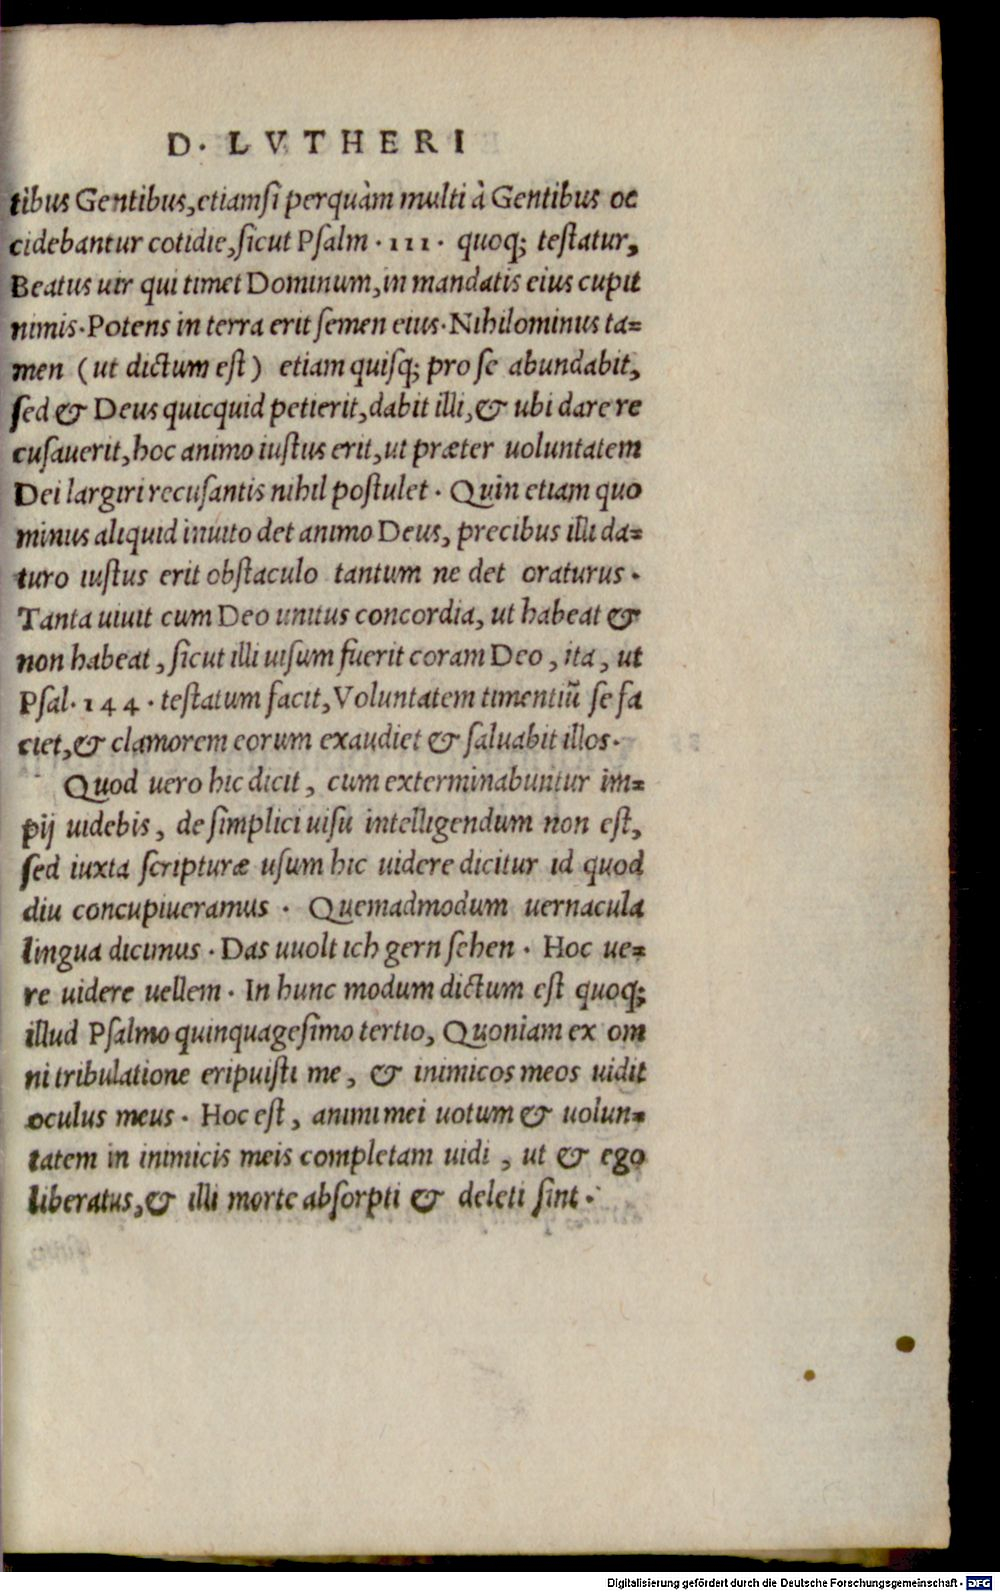 D. LVTHERI
tibus Gentibus, etiamsi perquàm multi à Gentibus oc
cidebantur cotidie, sicut Psalm. 111. quoq; testatur,
Beatus uir qui timet Dominum, in mandatis eius cupit
nimis. Potens in terra erit semen eius. Nihilominus ta=
men (ut dictum est) etiam quisq; pro se abundabit,
sed & Deus quicquid petierit, dabit illi, & ubi dare re
cusauerit, hoc animo iustus erit, ut præter uoluntatem
Dei largiri recusantis nihil postulet. Quin etiam quo
minus aliquid inuito det animo Deus, precibus illi da=
turo iustus erit obstaculo tantum ne det oraturus.
Tanta uiuit cum Deo unitus concordia, ut habeat &
non habeat, sicut illi uisum fuerit coram Deo, ita, ut
Psal. 144. testatum facit, Voluntatem timentiũ se fa
ciet, & clamorem eorum exaudiet & saluabit illos.
Quod uero hic dicit, cum exterminabuntur im=
pij uidebis, de simplici uisu intelligendum non est,
sed iuxta scripturæ usum hic uidere dicitur id quod
diu concupiueramus. Quemadmodum uernacula
lingua dicimus. Das uuolt ich gern sehen. Hoc ue=
re uidere uellem. In hunc modum dictum est quoq;
illud Psalmo quinquagesimo tertio, Quoniam ex om
ni tribulatione eripuisti me, & inimicos meos uidit
oculus meus. Hoc est, animi mei uotum & uolun=
tatem in inimicis meis completam uidi, ut & ego
liberatus, & illi morte absorpti & deleti sint.
Digitalisierung gefördert durch die Deutsche Forschungsgemeinschaft - DFG